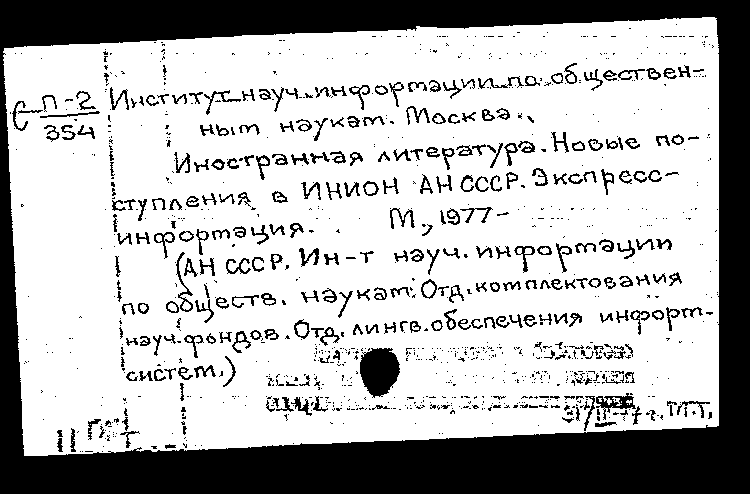 С П-2 Институт науч. информации по обществен-
354 ным наукам. Москва.
Иностранная литература. Новые по-
ступления в ИНИОН АН СССР. Экспресс-
информация. М, 1977-
(АН СССР. Ин-т науч. информации
по обществ. наукам. Отд. комплектования
науч. фондов. Отд. лингв. обеспечения информ.
систем.)